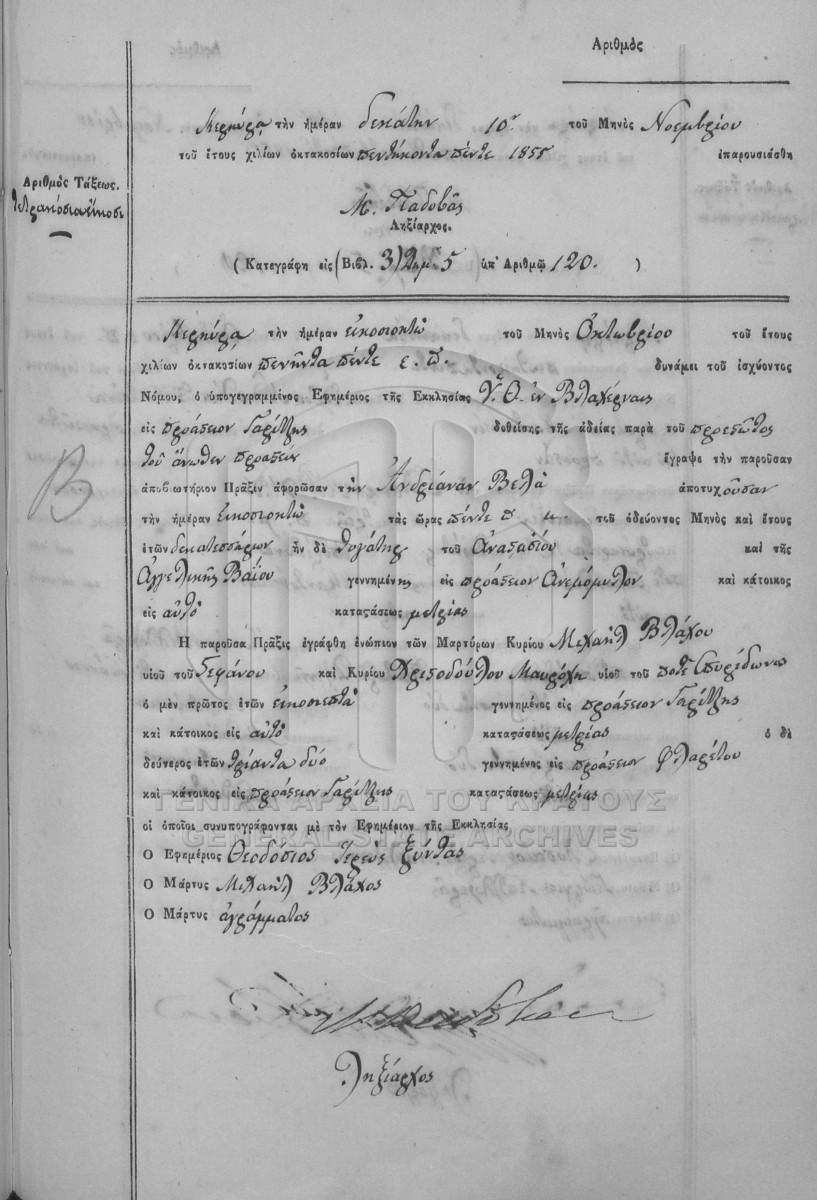 Ἀριθμὸς
Κερκύρα τὴν ἡμέραν δεκάτην 10ν τοῦ Μηνὸς Νοεμβρίου
τοῦ ἔτους χιλίων ὀκτακοσίων πεντήκοντα πέντε 1855 ἐπαρουσιάσθη
Ἀριθμὸς Τάξεως.
τετρακόσια εἴκοσι
Μ. Παδοβᾶς
Ληξίαρχος.
( Κατεγράφη εἰς (Βιβλ. 3) 5 ὑπ' Ἀριθμῷ 120. )
Κερκύρα τὴν ἡμέραν εἰκοσιοκτὼ τοῦ Μηνὸς Ὀκτωβρίου τοῦ ἔτους
χιλίων ὀκτακοσίων πενῆντα πέντε ε. π. δυνάμει τοῦ ἰσχύοντος
Νόμου, ὁ ὑπογεγραμμένος Ἐφημέριος τῆς Ἐκκλησίας Υ. Θ. ἐν Βλαχέρναις
εἰς προάστειον Γαρίτζης δοθείσης τῆς ἀδείας παρὰ τοῦ προεστῶτος
τοῦ ἄνωθεν προαστείου ἔγραψε τὴν παροῦσαν
ἀποβιωτήριον Πρᾶξιν ἀφορῶσαν τὴν Ἀνδριάναν Βελᾶ ἀποτυχοῦσαν
τὴν ἡμέραν εἰκοσιοκτὼ τὰς ὥρας πέντε π μ. τοῦ ὁδεύοντος Μηνὸς καὶ ἔτους
ἐτῶν δεκατεσσάρων ἦν δὲ θυγάτηρ τοῦ Ἀναστασίου καὶ τῆς
Ἀγγελικῆς Βαΐου γεννημένης εἰς προάστειον Ἀνεμόμυλον καὶ κάτοικος
εἰς αὐτὸ καταστάσεως μετρίας
Ἡ παροῦσα Πρᾶξις ἐγράφθη ἐνώπιον τῶν Μαρτύρων Κυρίου Μιχαὴλ Βλάχου
υἱοῦ τοῦ Στεφάνου καὶ Κυρίου Χριστοδούλου Μαυρόχη υἱοῦ τοῦ ποτὲ Σπυρίδωνος
ὁ μὲν πρῶτος ἐτῶν εἰκοσιεπτὰ γεννημένος εἰς προάστειον Γαρίτζης
καὶ κάτοικος εἰς αὐτὸ καταστάσεως μετρίας ὁ δὲ
δεύτερος ἐτῶν τριάντα δύο γεννημένος εἰς προάστειον Φλαρέτου
καὶ κάτοικος εἰς προάστειον Γαρίτζης καταστάσεως μετρίας
ΓΕΝΙΚΑ ΑΡΧΕΙΑ ΤΟΥ ΚΡΑΤΟΥΣ
οἱ ὁποῖοι συνυπογράφονται μὲ τὸν Ἐφημέριον τῆς Ἐκκλησίας
GENERAL STATE ARCHIVES
Ὁ Ἐφημέριος Θεοδόσιος Ἱερεὺς Ξύντας
Ὁ Μάρτυς Μιχαὴλ Βλάχος
Ὁ Μάρτυς ἀγράμματος
Ληξίαρχος
Β